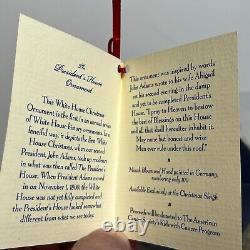 The
President's House
Ornament
This White House Christmas
Ornament is the first in an annual series
of White House Historic ornaments. In a
fanciful way, it depicts the first White
House Christmas, when our second
President, John Adams, took up residence
in what was then called The President's
House. When President Adams moved
in on November 1, 1800, the White House
was not yet fully completed and the
President's House looked somewhat
different from what we see today.
This ornament was inspired by words
John Adams wrote to his wife Abigail
on his second evening in the damp
and yet to be completed President's
House, "I pray to Heaven to bestow
the best of Blessings on this House
and all that shall hereafter inhabit it.
May none but honest and wise
Men ever rule under this roof."
Mouth Blown and Hand painted in Germany,
Available Exclusively at the Christmas Sleigh
Proceeds will be donated to The American
Cancer Society's Kids with Cancer Program